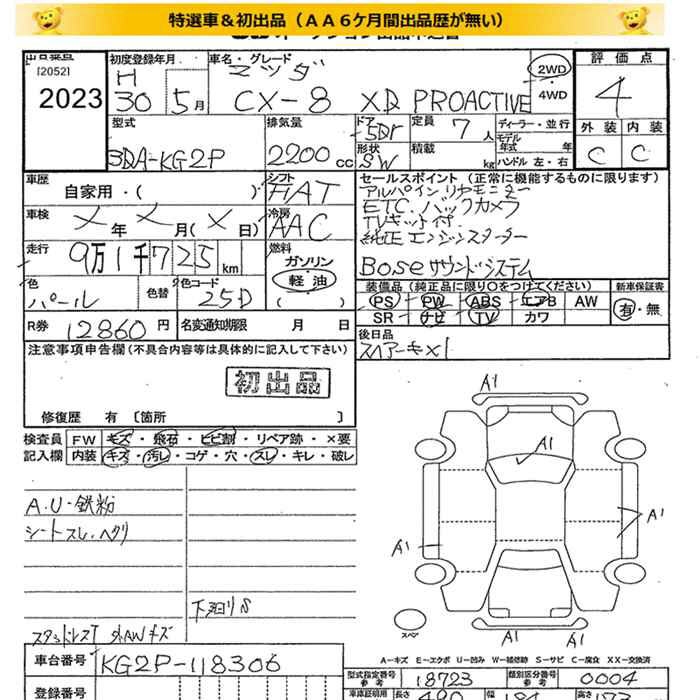 特選車&初出品（ＡＡ６ケ月間出品歴が無い）
[2052]
2023
初度登録年月
H
30 5月
車名・グレード
マツダ
CX-8 XD PROACTIVE
2WD
4WD
評価点
4
外装 内装
C C
型式
3DA-KG2P
排気量
2200 cc
ドア
5Dr
形状
SW
定員 7 人
積載 kg
ディーラー・並行
モデル年式 年
ハンドル 左・右
車歴
自家用・( )
シフト
FAT
車検
年 月( 日)
冷房
AAC
走行
9万1千725km
燃料
ガソリン
軽油
( )
色
パール
色替
色コード
25D
R券 12860円
名変通知期限 月 日
セールスポイント（正常に機能するものに限ります）
アルパイン リヤモニター
ETC.バックカメラ
TVキット付.
純正エンジンスターター
Boseサウンドシステム
装備品（純正品に限り○をつけてください）
PS PW ABS エアB AW
SR ナビ TV カワ
新車保証書
有・無
後日品
スペアーキー×1
注意事項申告欄(不具合内容等は具体的に記入して下さい)
初出品
修復歴 有 〔箇所 〕
検査員記入欄
FW キズ・飛石・ヒビ割・リペア跡・×要
内装 キズ・汚レ・コゲ・穴・スレ・キレ・破レ
A.U・鉄粉
シートスレ、ヘタリ
下廻りS
スタッドレスT 外AWキズ
車台番号 KG2P-118306
登録番号
A1
A1
A1
A1
A1
A1
スペア
A－キズ E－エクボ U－凹み W－補修跡 S－サビ C－腐食 XX－交換済
型式指定番号
参考
18723
類別区分番号
参考
0004
車庫証明用
長さ
490
幅
高さ